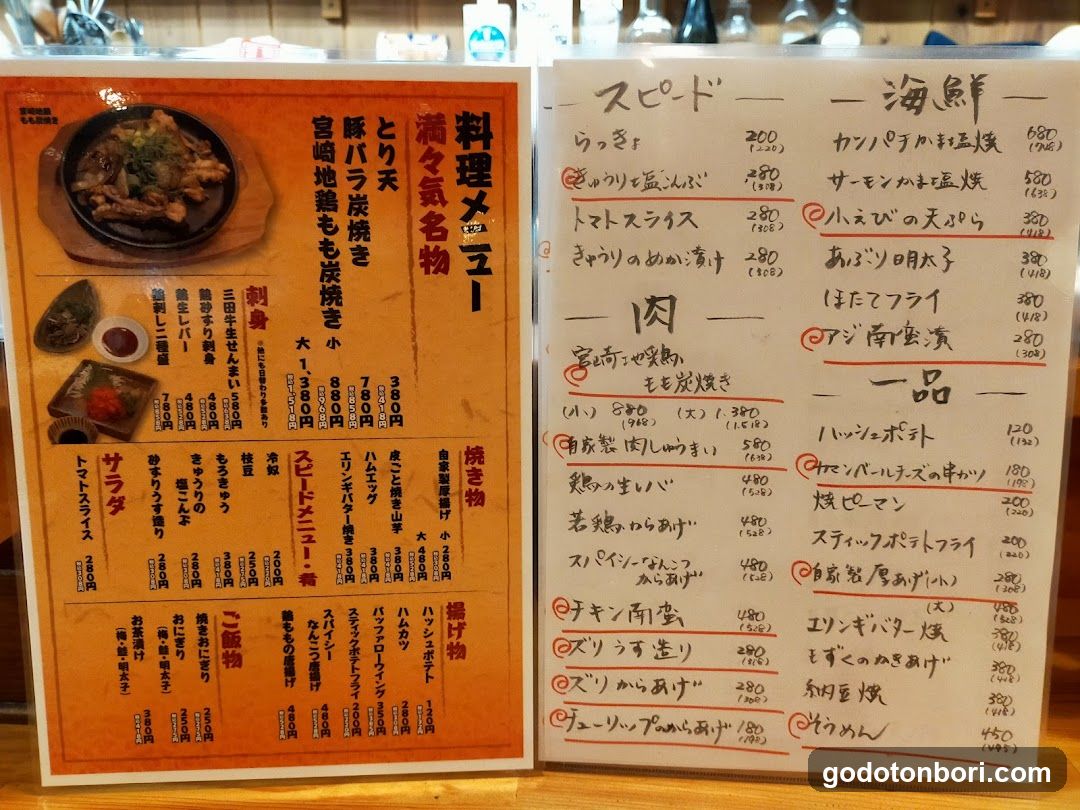 宮崎地鶏
もも炭焼き
料理メニュー
満々気名物
とり天 380円
豚バラ炭焼き 780円
宮崎地鶏もも炭焼き 小 880円
大 1,380円
刺身
三田牛生せんまい 580円
鶏砂すり刺身 480円
鶏生レバー 480円
鶏刺し二種盛 780円
焼き物
自家製厚揚げ 小 280円
大 480円
皮ごと焼き山芋 380円
ハムエッグ 380円
エリンギバター焼き 380円
スピードメニュー・肴
冷奴 200円
枝豆 250円
もろきゅう 380円
きゅうりの塩こんぶ 280円
砂ずりうす造り 280円
サラダ
トマトスライス 280円
揚げ物
ハッシュポテト 120円
ハムカツ 280円
バッファローウイング 350円
スティックポテトフライ 200円
スパイシーなんこつ唐揚げ 480円
鶏ももの唐揚げ 480円
ご飯物
焼きおにぎり 250円
おにぎり
(梅・鮭・明太子) 250円
お茶漬け
(梅・鮭・明太子) 380円
スピード
らっきょ 200
(220)
きゅうりと塩こんぶ 280
(308)
トマトスライス 280
(308)
きゅうりのめか漬け 280
(308)
肉
宮崎地鶏
もも炭焼き
(小) 880 (大) 1.380
(968) (1.518)
自家製肉しゅうまい 580
(638)
鶏の生レバ 480
(528)
若鶏からあげ 480
(528)
スパイシーなんこつ
からあげ 480
(528)
チキン南蛮 480
(528)
ズリうす造り 280
ズリからあげ 280
(308)
チューリップのからあげ 180
(198)
海鮮
カンパチかま塩焼 680
(748)
サーモンかま塩焼 580
(638)
小えびの天ぷら 380
(418)
あぶり明太子 380
(418)
ほたてフライ 380
(418)
アジ南蛮漬 280
(308)
一品
ハッシュポテト 120
(132)
カマンベールチーズの串カツ 180
(198)
焼ピーマン 200
(220)
スティックポテトフライ 200
(220)
自家製厚あげ(小) 280
(308)
(大) 480
(528)
エリンギバター焼 380
(418)
もずくのかきあげ 380
(418)
納豆焼 380
(418)
そうめん 450
(495)
godotonbori.com